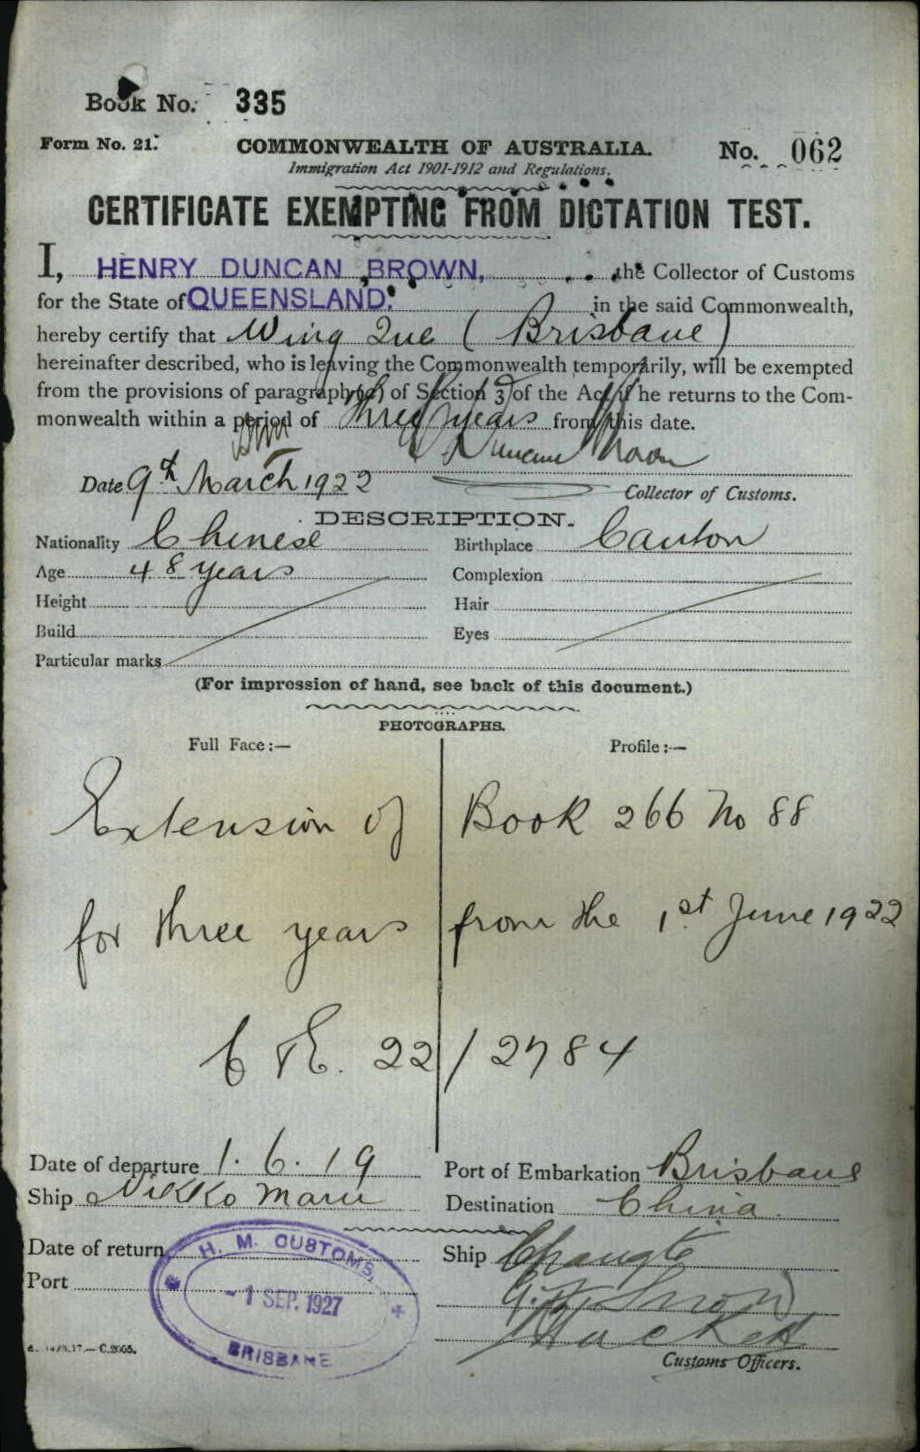 Book No. 335
Form No. 21. COMMONWEALTH OF AUSTRALIA. No. 062
Immigration Act 1901-1912 and Regulations.
CERTIFICATE EXEMPTING FROM DICTATION TEST.
I, HENRY DUNCAN BROWN, the Collector of Customs
for the State of QUEENSLAND. in the said Commonwealth,
hereby certify that Wing Que (Brisbane)
hereinafter described, who is leaving the Commonwealth temporarily, will be exempted
from the provisions of paragraph (a) of Section 3 of the Act if he returns to the Com-
monwealth within a period of three years from this date.
Date 9th March 1922
Collector of Customs.
DESCRIPTION.
Nationality Chinese Birthplace Canton
Age 48 years Complexion
Height Hair
Build Eyes
Particular marks
(For impression of hand, see back of this document.)
PHOTOGRAPHS.
Full Face:— Profile:—
Extension of Book 266 No 88
for three years from the 1st June 1922
C & E. 22/2784
Date of departure 1.6.19 Port of Embarkation Brisbane
Ship Nikko Maru Destination China
Date of return Ship Changte
Port
H. M. CUSTOMS,
- 1 SEP. 1927
BRISBANE
C.2665.
Customs Officers.